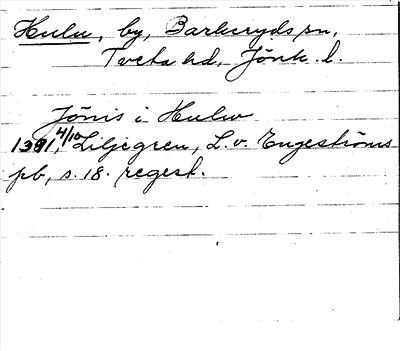 Hulu, by, Barkeryds sn,
Tveta hd, Jönk. l.
Jönis i Hulw
1391, 4/10 Liljegren, L. v. Engeströms
pb, s. 18. regest.